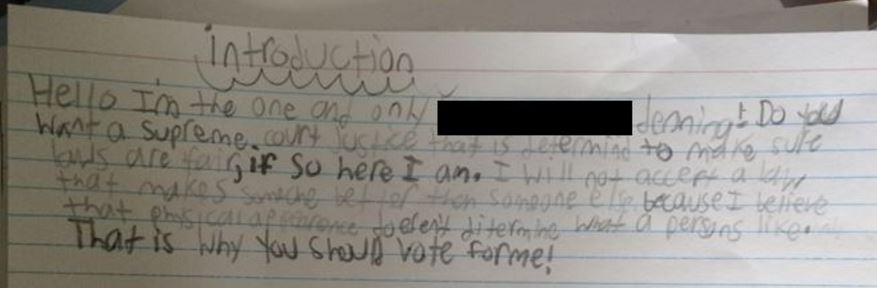 introduction
Hello I'm the one and only demming! Do you
want a supreme court justice that is determind to make sure
laws are fair, if so here I am. I will not accept a law
that makes someone better then someone else because I believe
that physical apperence doesent ditermine what a persons like.
That is why you should vote for me!